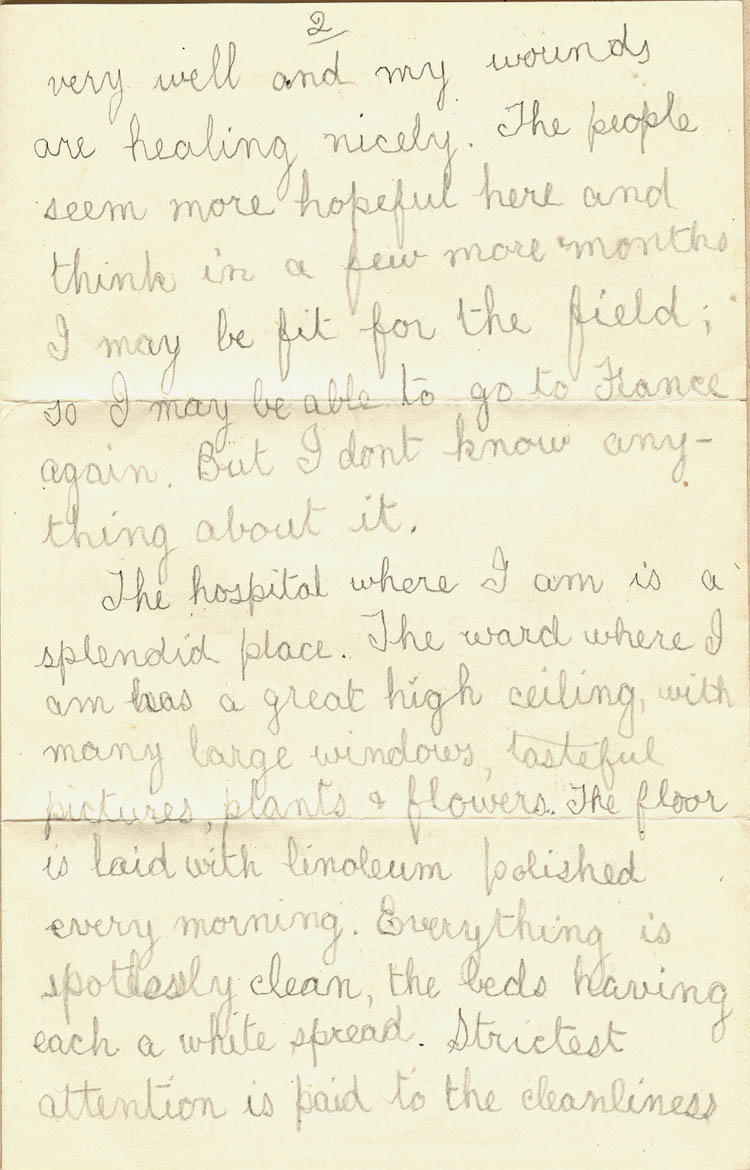 2
very well and my wounds
are healing nicely. The people
seem more hopeful here and
think in a few more months
I may be fit for the field;
so I may be able to go to France
again. But I dont know any-
thing about it.
The hospital where I am is a
splendid place. The ward where I
am has a great high ceiling, with
many large windows, tasteful
pictures, plants & flowers. The floor
is laid with linoleum polished
every morning. Everything is
spotlessly clean, the beds having
each a white spread. Strictest
attention is paid to the cleanliness